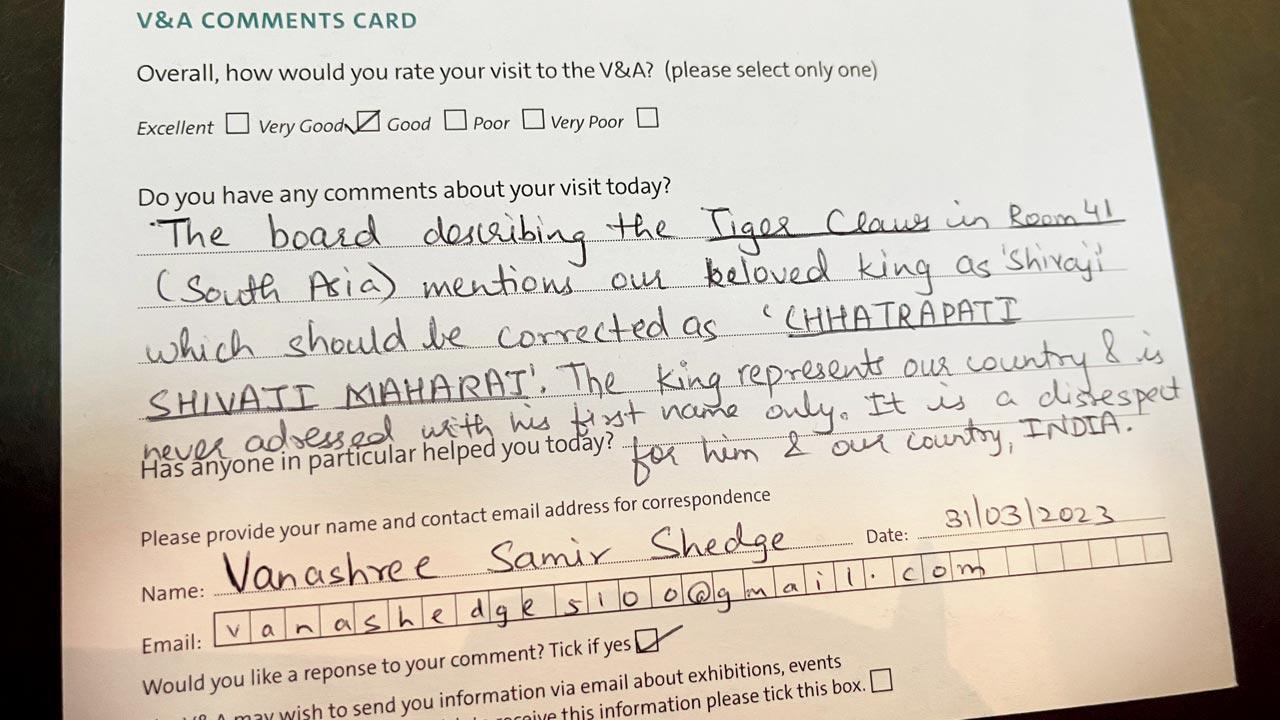 V&A COMMENTS CARD
Overall, how would you rate your visit to the V&A? (please select only one)
Excellent Very Good Good Poor Very Poor
Do you have any comments about your visit today?
The board describing the Tiger Claws in Room 41
(South Asia) mentions our beloved king as 'Shivaji'
which should be corrected as 'CHHATRAPATI
SHIVAJI MAHARAJ'. The king represents our country & is
never adressed with his first name only. It is a disrespect
Has anyone in particular helped you today? for him & our country, INDIA.
Please provide your name and contact email address for correspondence
Name: Vanashree Samir Shedge Date: 31/03/2023
Email: vanashedge5100@gmail.com
Would you like a reponse to your comment? Tick if yes
V&A may wish to send you information via email about exhibitions, events
receive this information please tick this box.